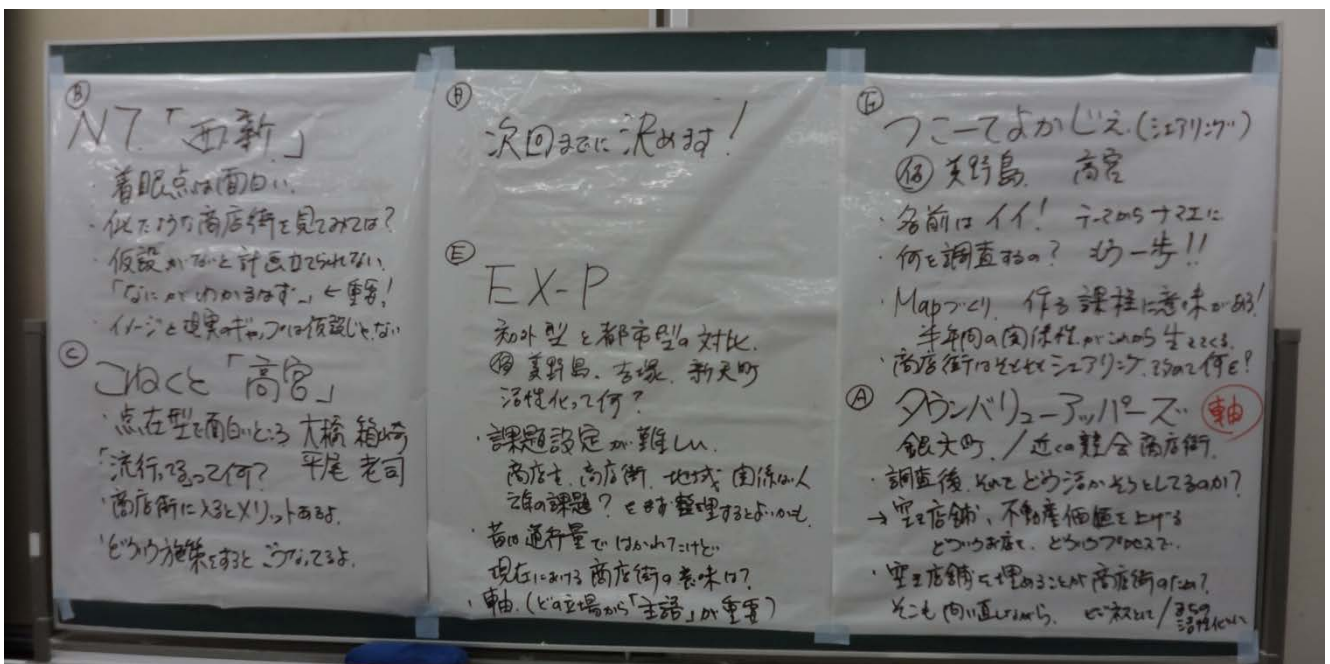 Ⓑ
N7.「西新」
・着眼点は面白い.
・似たような商店街を見てみては?
・仮設がないと計画立てられない.
「なにがわかるはず〜」←重要!
・イメージと現実のギャップは仮設じゃない
Ⓒ
こねくと「高宮」
・点在型で面白いところ 大橋 箱崎
「流行ってるって何? 平尾
・商店街に入るとメリットあるよ.
・どういう施策をすると こうなってるよ.
次回までに決めます!
Ⓔ
EX-P
郊外型と都市型の対比.
美野島. 吉塚. 新天町
活性化って何?
・課題設定が難しい.
商店主. 商店街. 地域 関係ない人
誰の課題? をまず整理するとよいかも.
・昔は通行量ではかれてたけど
現在における商店街の意味は?
・軸.(どの立場から「主語」が重要)
つこーてよかじぇ.(シェアリング)
仮 美野島. 高宮
・名前はイイ! テーマからナマエに
・何を調査するの? もう一歩!!
・Mapづくり. 作る課程に意味がある!
半年間の関係性がこれから生きてくる.
・商店街はそもそもシェアリング. 改めて何を!
Ⓐ
タウンバリューアッパーズ 軸
銀天町. / 近くの競合商店街.
・調査後. それでどう活かそうとしてるのか?
→空き店舗、不動産価値を上げる
どういうお店を、どういうプロセスで.
・空き店舗を埋めることが商店街のため?
そこも問い直しながら. ビジネスとして/まちの活性化に